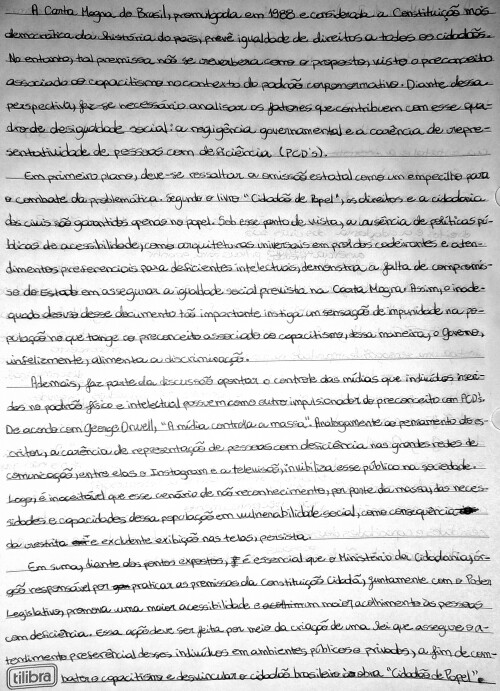 A Carta Magna do Brasil, promulgada em 1988 e considerada a Constituição mais
democrática da história do país, prevê igualdade de direitos a todos os cidadãos.
No entanto, tal premissa não se reverbera como o proposto, visto o preconceito
associado ao capacitismo no contexto do padrão corponormativo. Diante dessa
perspectiva, faz-se necessário analisar os fatores que contribuem com esse qua-
dro de desigualdade social: a negigência governamental e a carência de repre-
sentatividade de pessoas com deficiência (PCD's).
Em primeiro plano, deve-se ressaltar a omissão estatal como um empecilho para
o combate da problemática. Segundo o livro "Cidadão de Papel", os direitos e a cidadania
dos civis são garantidos apenas no papel. Sob esse ponto de vista, a ausência de políticas pú-
blicas de acessibilidade, como arquiteturas universais em prol dos cadeirantes e aten-
dimentos preferenciais para deficientes intelectuais, demonstra a falta de compromis-
so do Estado em assegurar a igualdade social prevista na Carta Magna. Assim, o inade-
quado desuso desse documento tão importante instiga um sensação de impunidade na po-
pulação no que tange ao preconceito associado ao capacitismo, dessa maneira, o Governo,
infelizmente, alimenta a discriminação.
Ademais, faz parte da discussão apontar o controle das mídias que indivíduos inseri-
dos no padrão físico e intelectual possuem como outro impulsionador do preconceito com PCD's.
De acordo com George Orwell, "A mídia controla a massa". Analogamente ao pensamento do es-
critor, a carência de representação de pessoas com deficiência nas grandes redes de
comunicação, entre elas o Instagram e a televisão, inviibiliza esse público na sociedade.
Logo, é inaceitável que esse cenário de não reconhecimento, por parte da massa, das neces-
sidades e capacidades dessa população em vulnerabilidade social, como consequência
da restrita e excludente exibição nas telas, persista.
Em suma, diante dos pontos expostos, é essencial que o Ministério da Cidadania, ór-
gão responsável por praticar as premissas da Constituição Cidadã, juntamente com o Poder
Legislativo, promova uma maior acessibilidade e maior acolhimento às pessoas
com deficiência. Essa ação deve ser feita por meio da criação de uma lei que assegure o a-
tendimento preferencial desses indivíduos em ambientes públicos e privados, a fim de com-
bater o capacitismo e desvincular o cidadão brasileiro à obra "Cidadão de Papel".
tilibra